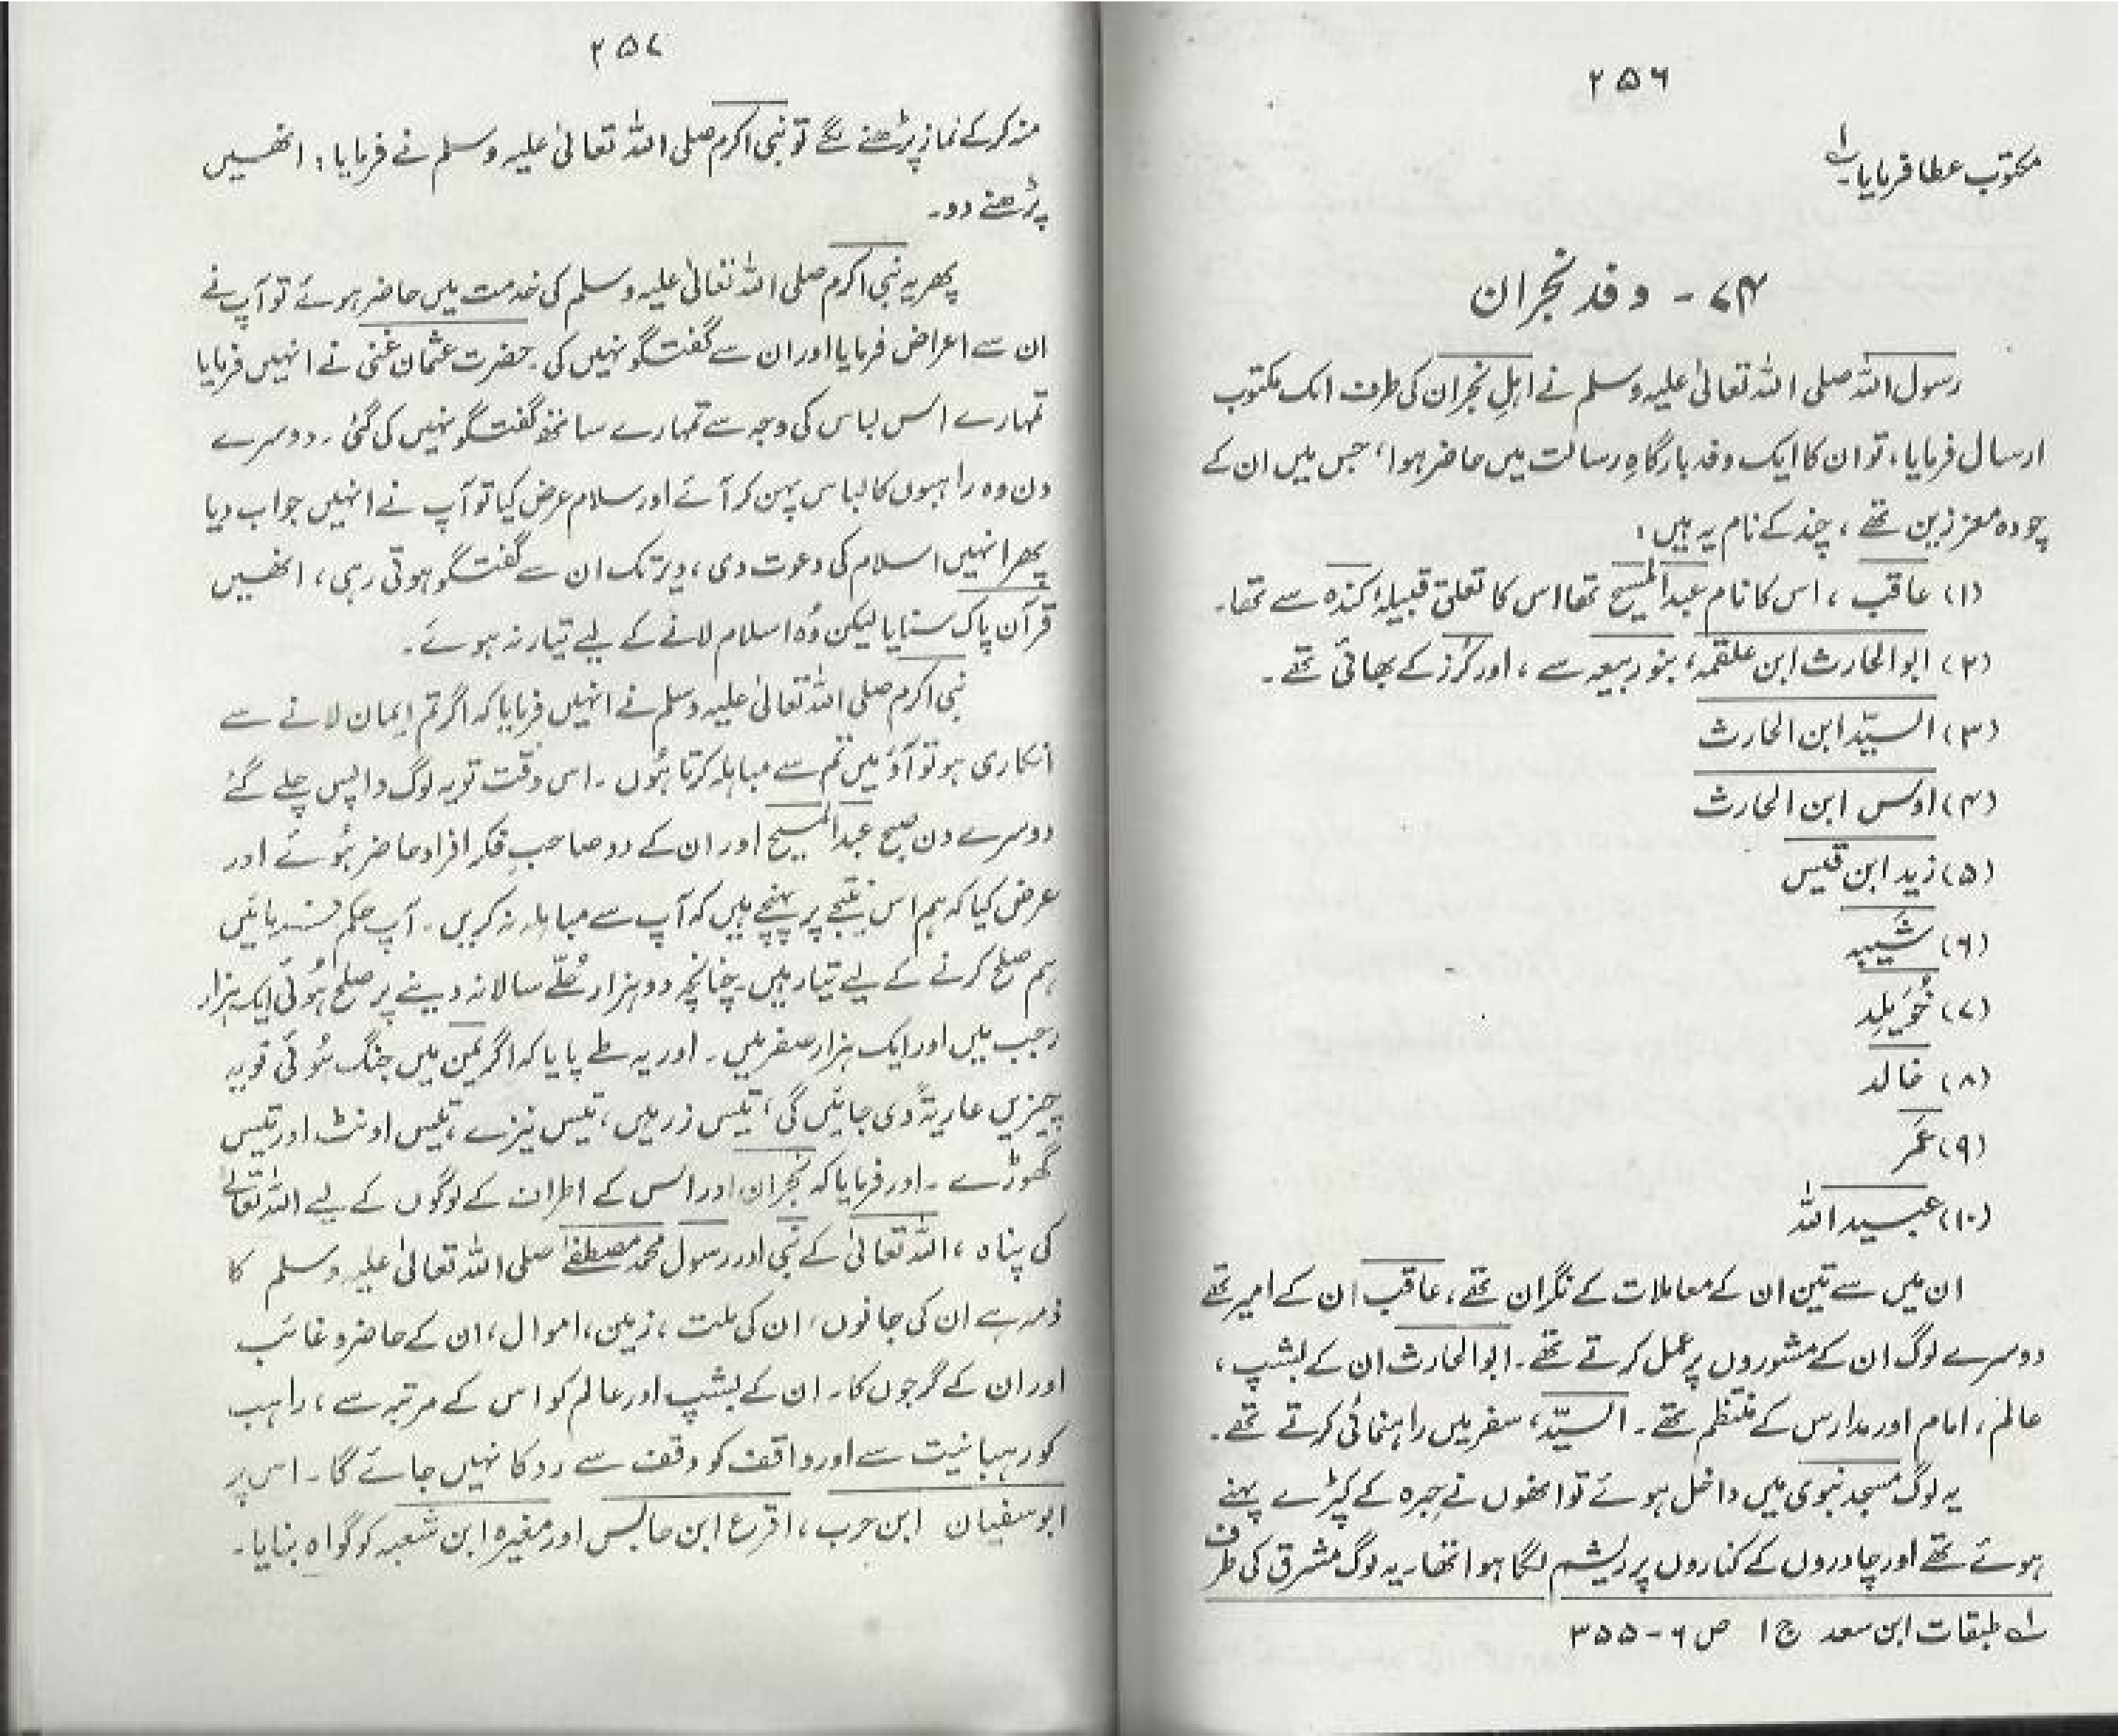 ۲۵۶
مکتوب عطا فرمایا۔ ؂۱
۷۴ - وفد نجران
رسول اللہ صلی اللہ تعالیٰ علیہ وسلم نے اہلِ نجران کی طرف ایک مکتوب
ارسال فرمایا، تو ان کا ایک وفد بارگاہِ رسالت میں حاضر ہوا، جس میں ان کے
چودہ معززین تھے، چند کے نام یہ ہیں:
(۱) عاقب، اس کا نام عبد المسیح تھا اس کا تعلق قبیلہ کندہ سے تھا۔
(۲) ابو الحارث ابن علقمہ، بنو ربیعہ سے، اور کُرز کے بھائی تھے۔
(۳) السیّد ابن الحارث
(۴) اوس ابن الحارث
(۵) زید ابن قیس
(۶) شَیبہ
(۷) خُوَیلِد
(۸) خالد
(۹) عَمر
(۱۰) عبید اللہ
ان میں سے تین ان کے معاملات کے نگران تھے، عاقب ان کے امیر تھے
دوسرے لوگ ان کے مشوروں پر عمل کرتے تھے۔ ابو الحارث ان کے بشپ،
عالم، امام اور مدارس کے منتظم تھے۔ السیّد، سفر میں راہنمائی کرتے تھے۔
یہ لوگ مسجد نبوی میں داخل ہوئے تو انھوں نے حِبرہ کے کپڑے پہنے
ہوئے تھے اور چادروں کے کناروں پر ریشم لگا ہوا تھا یہ لوگ مشرق کی طرف
؂۱ طبقات ابن سعد ج ۱ ص ۶-۳۵۵
۲۵۷
منہ کر کے نماز پڑھنے لگے تو نبی اکرم صلی اللہ تعالیٰ علیہ وسلم نے فرمایا: انھیں
پڑھنے دو۔
پھر یہ نبی اکرم صلی اللہ تعالیٰ علیہ وسلم کی خدمت میں حاضر ہوئے تو آپ نے
ان سے اعراض فرمایا اور ان سے گفتگو نہیں کی۔ حضرت عثمان غنی نے انہیں فرمایا
تمہارے اس لباس کی وجہ سے تمہارے ساتھ گفتگو نہیں کی گئی۔ دوسرے
دن وہ راہبوں کا لباس پہن کر آئے اور سلام عرض کیا تو آپ نے انہیں جواب دیا
پھر انہیں اسلام کی دعوت دی، دیر تک ان سے گفتگو ہوتی رہی، انھیں
قرآن پاک سنایا لیکن وُہ اسلام لانے کے لیے تیار نہ ہوئے۔
نبی اکرم صلی اللہ تعالیٰ علیہ وسلم نے انہیں فرمایا کہ اگر تم ایمان لانے سے
انکاری ہو تو آؤ میں تم سے مباہلہ کرتا ہُوں۔ اس وقت تو یہ لوگ واپس چلے گئے
دوسرے دن صبح عبد المسیح اور ان کے دو صاحبِ فکر افراد حاضر ہُوئے اور
عرض کیا کہ ہم اس نتیجے پر پہنچے ہیں کہ آپ سے مباہلہ نہ کریں۔ آپ حکم فرمائیں
ہم صلح کرنے کے لیے تیار ہیں۔ چنانچہ دو ہزار حُلّے سالانہ دینے پر صلح ہُوئی ایک ہزار
رجب میں اور ایک ہزار صفر میں۔ اور یہ طے پایا کہ اگر یمن میں جنگ ہُوئی تو یہ
چیزیں عاریۃً دی جائیں گی، تیس زرہیں، تیس نیزے، تیس اونٹ اور تیس
گھوڑے۔ اور فرمایا کہ نجران اور اس کے اطراف کے لوگوں کے لیے اللہ تعالیٰ
کی پناہ، اللہ تعالیٰ کے نبی اور رسول محمد مصطفےٰ صلی اللہ تعالیٰ علیہ وسلم کا
ذمہ ہے ان کی جانوں، ان کی ملت، زمین، اموال، ان کے حاضر و غائب
اور ان کے گرجوں کا۔ ان کے بشپ اور عالم کو اس کے مرتبہ سے، راہب
کو رہبانیت سے اور واقف کو وقف سے روکا نہیں جائے گا۔ اس پر
ابو سفیان ابن حرب، اقرع ابن حابس اور مغیرہ ابن شعبہ کو گواہ بنایا۔